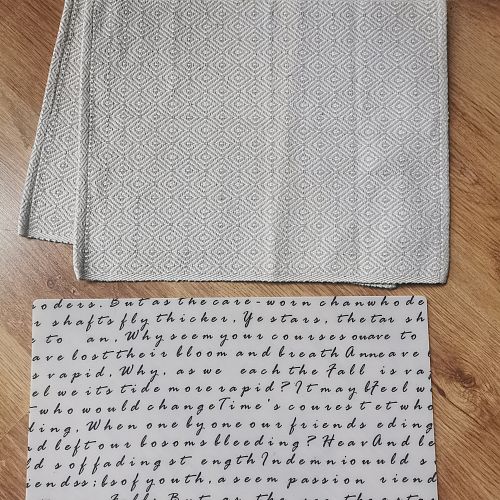 oders. But as the care-worn chanwhode
r shafts fly thicker, Ye stars, thetar sh
e to an, Why seem your courses ouave to
ave lost their bloom and breath Anneave l
s vapid, Why, as we each the Fall is va
el we its tide more rapid? It may bFeel w
t who would change Time's coures tet who
ding, When one by one our friends eding
nd left our bosoms bleeding? HeavAnd le
ld s of fadingst engthIndemniouuld s
iendss; bs of youth, a seem passion riend
But as the